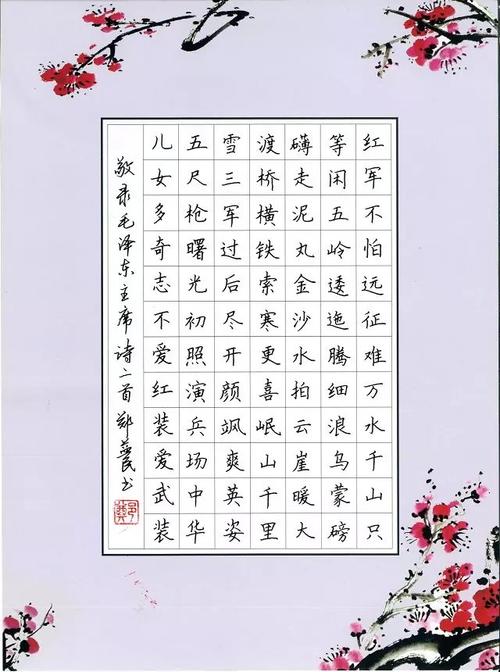 红军不怕远征难万水千山只
等闲五岭逶迤腾细浪乌蒙磅
礴走泥丸金沙水拍云崖暖大
渡桥横铁索寒更喜岷山千里
雪三军过后尽开颜飒爽英姿
五尺枪曙光初照演兵场中华
儿女多奇志不爱红装爱武装
敬录毛泽东主席诗二首 郑 书